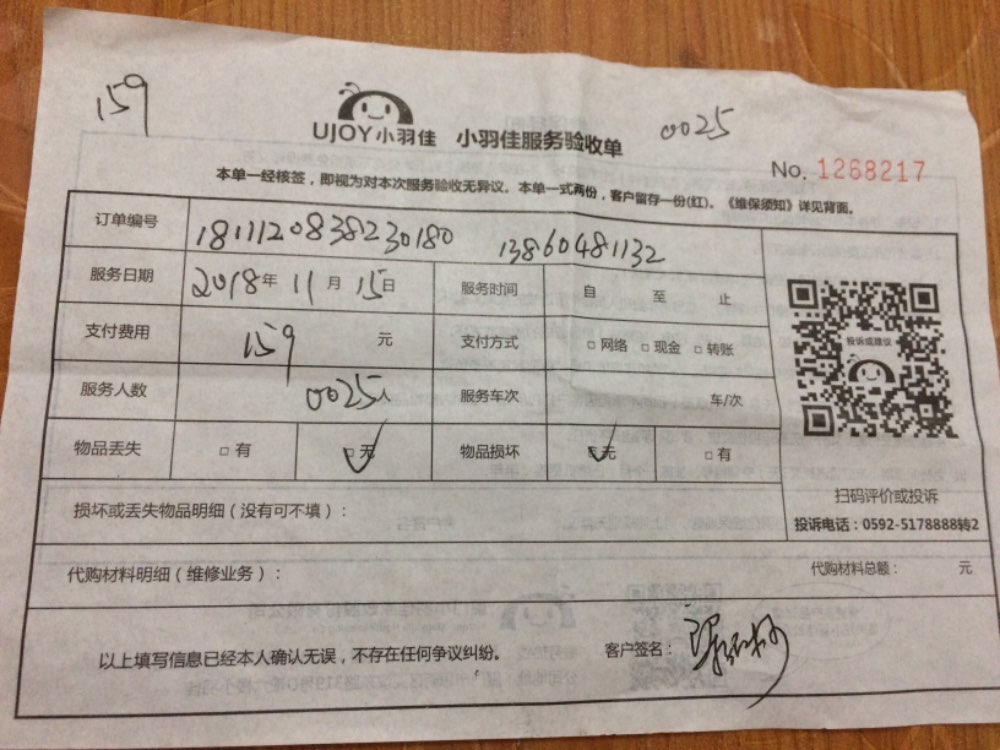 159
UJOY小羽佳 小羽佳服务验收单
0025
No. 1268217
本单一经核签，即视为对本次服务验收无异议。本单一式两份，客户留存一份(红)。《维保须知》详见背面。
订单编号 1811120838230180 13860481132
服务日期 2018年 11月 15日 服务时间 自 至 止
支付费用 159 元 支付方式 □网络 □现金 □转账
服务人数 0025人 服务车次 车/次
物品丢失 □有 □无 物品损坏 □无 □有
投诉或建议
扫码评价或投诉
投诉电话：0592-5178888转2
损坏或丢失物品明细（没有可不填）：
代购材料明细（维修业务）： 代购材料总额： 元
以上填写信息已经本人确认无误，不存在任何争议纠纷。 客户签名：